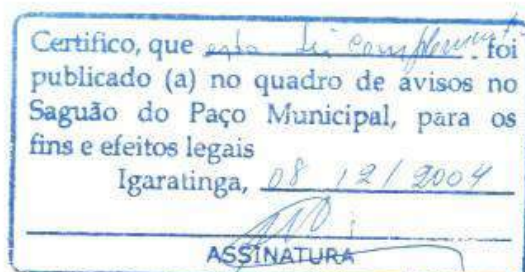 Certifico, que esta Lei Complementar foi
publicado (a) no quadro de avisos no
Saguão do Paço Municipal, para os
fins e efeitos legais
Igaratinga, 08 / 12 / 2004
ASSINATURA